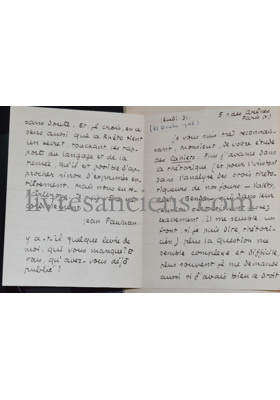 sans doute. Et, je crois, en ce
sens aussi que la Rhéto tient
un secret touchant les rap-
ports du langage et de la
pensée qu'il est possible d'ap-
procher sinon d'exprimer en-
tièrement. Mais nous en re-
Jean Paulhan
y a-t-il quelque livre de
moi, qui vous manque? Et
vous, qu'avez-vous déjà
publié?
Jeudi 21.
5 rue des Arènes
Paris (V)
je vous suis très reconnais-
sant, Monsieur, de votre étude
des Cahiers. Plus j'avance dans
la rhétorique (et pour l'instant
dans l'analyse des trois rhéto-
riqueurs de nos jours — Valéry,
Benda
qui dans leur
exactement. Il me semble, un
front, si je puis dire, rhétori-
plus la question me
semble complexe et difficile,
plus souvent je me demande
aussi si j'avais bien le droit
livresanciens.com